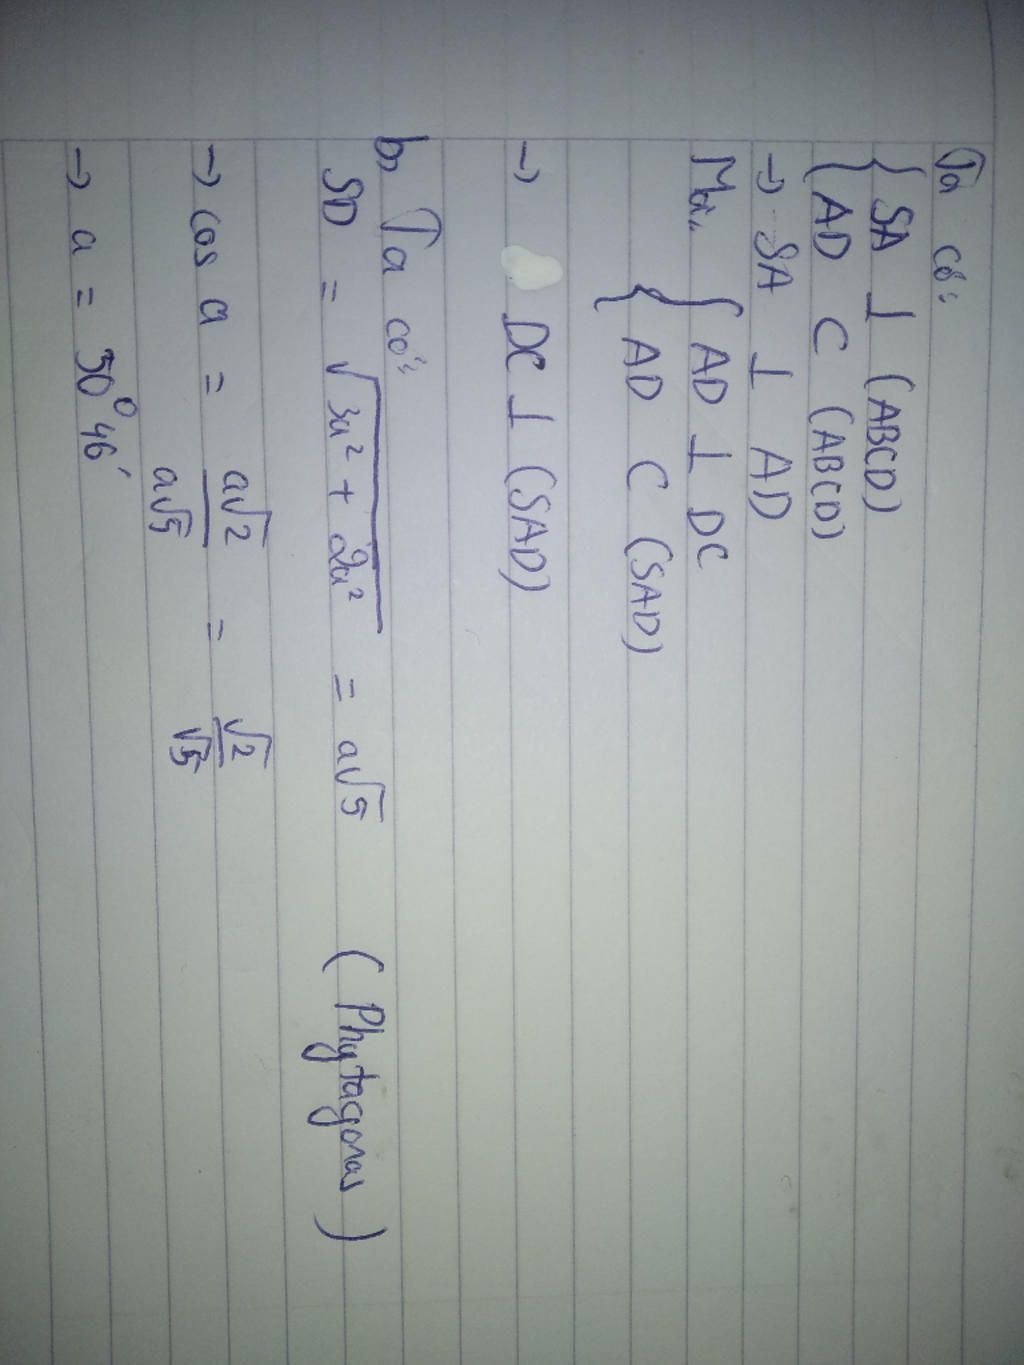 Ta có:
{ SA ⊥ (ABCD)
{ AD ⊂ (ABCD)
→ SA ⊥ AD
Mà { AD ⊥ DC
{ AD ⊂ (SAD)
→ DC ⊥ (SAD)
b, Ta có:
SD = √(3a² + 2a²) = a√5 (Phytagoras)
→ cos a = a√2 / a√5 = √2 / √5
→ a = 50°46'